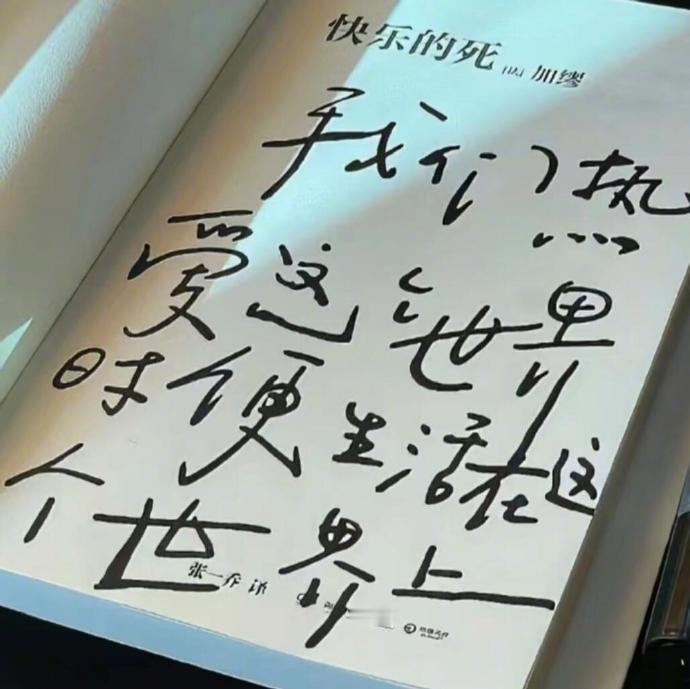 快乐的死 加缪
我们热
爱这个世界
时便生活在这
个世界上
张一乔 译